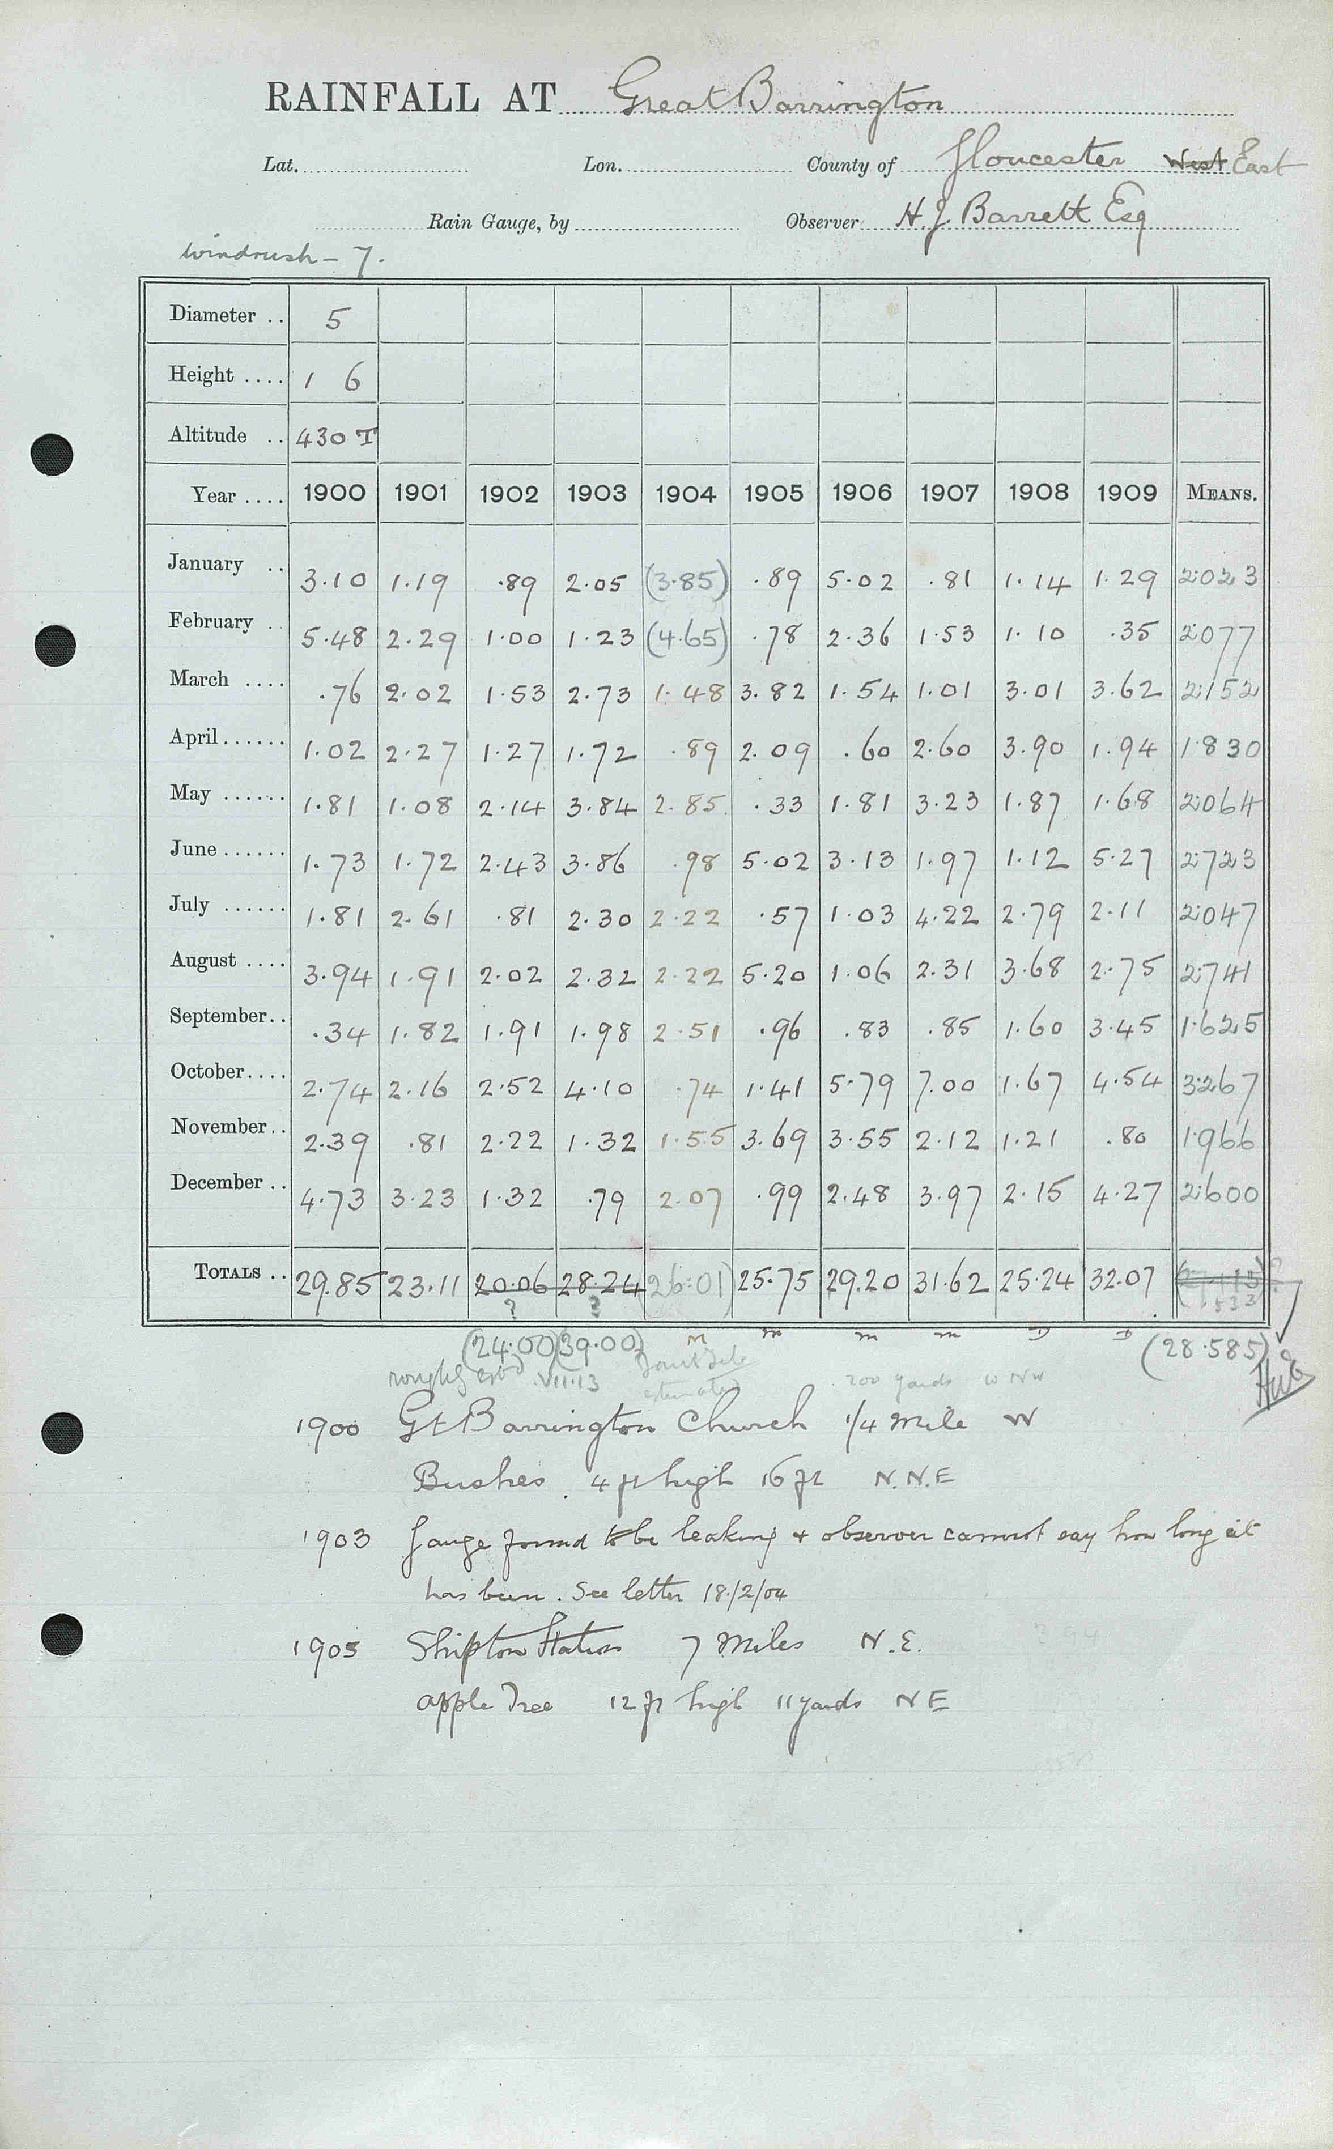 RAINFALL AT Great Barrington
Lat. Lon. County of Gloucester West East
Rain Gauge, by Observer H.J. Barrett Esq
Windrush - 7.
Diameter .. 5
Height .... 1 6
Altitude .. 430 T
Year .... 1900 1901 1902 1903 1904 1905 1906 1907 1908 1909 MEANS.
January .. 3.10 1.19 .89 2.05 (3.85) .89 5.02 .81 1.14 1.29 2.023
February .. 5.48 2.29 1.00 1.23 (4.65) .78 2.36 1.53 1.10 .35 2.077
March .... .76 2.02 1.53 2.73 1.48 3.82 1.54 1.01 3.01 3.62 2.152
April...... 1.02 2.27 1.27 1.72 .89 2.09 .60 2.60 3.90 1.94 1.830
May ...... 1.81 1.08 2.14 3.84 2.85 .33 1.81 3.23 1.87 1.68 2.064
June ...... 1.73 1.72 2.43 3.86 .98 5.02 3.13 1.97 1.12 5.27 2.723
July ...... 1.81 2.61 .81 2.30 2.22 .57 1.03 4.22 2.79 2.11 2.047
August .... 3.94 1.91 2.02 2.32 2.22 5.20 1.06 2.31 3.68 2.75 2.741
September.. .34 1.82 1.91 1.98 2.51 .96 .83 .85 1.60 3.45 1.625
October.... 2.74 2.16 2.52 4.10 .74 1.41 5.79 7.00 1.67 4.54 3.267
November.. 2.39 .81 2.22 1.32 1.55 3.69 3.55 2.12 1.21 .80 1.966
December .. 4.73 3.23 1.32 .79 2.07 .99 2.48 3.97 2.15 4.27 2.600
TOTALS .. 29.85 23.11 20.06 28.24 (26.01) 25.75 29.20 31.62 25.24 32.07
? ?
(24.00) (39.00) M m m m D D (28.585)
roughly estd VII.13 estimated 200 yards W NW
1900 Gt Barrington Church 1/4 mile W
Bushes 4 ft high 16 ft N.N.E
1903 Gauge found to be leaking & observer cannot say how long it
has been. See letter 18/2/04
1905 Shipton Station 7 Miles N.E.
apple Tree 12 ft high 11 yards NE